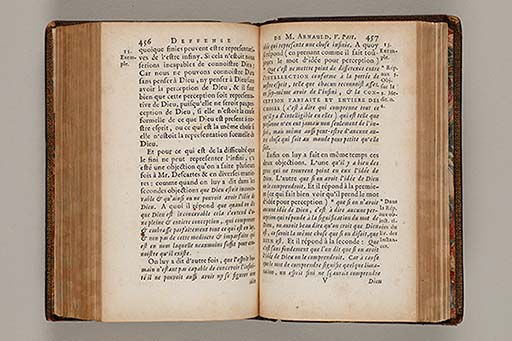 456 DEFFENSE
15. Exem-
ple.
quoique finies peuvent estre representati-
ves de l'estre infiny. Si cela n'estoit nous
serions incapables de connoistre Dieu:
Car nous ne pouvons connoistre Dieu
sans penser à Dieu, ny penser à Dieu sans
avoir la perception de Dieu, & il faut
bien que cette perception soit representa-
tive de Dieu, puisqu'elle ne seroit pas per-
ception de Dieu, si elle n'estoit la cause
formelle de ce que Dieu est present à nô-
tre esprit, ou ce qui est la même chose si
elle n'estoit la representation formelle de
Dieu.
Et pour ce qui est de la difficulté que
le fini ne peut representer l'infini, c'a
esté une objection qu'on a faite plusieurs
fois à Mr. Descartes & en diverses manie-
res: comme quand on luy a dit dans les
secondes objections que Dieu estoit inconce-
vable & qu'ainsi on ne pouvoit avoir l'idée de
Dieu. A quoi il répond que quand on dit
que Dieu est inconcevable cela s'entend d'u-
ne pleine & entiere conception, qui comprenne
& embrasse parfaitement tout ce qui est en lui,
& non pas de cette mediocre & imparfaite qui
est en nous laquelle neanmoins suffit pour con-
noistre qu'il existe.
On luy a dit d'autre fois, que l'esprit hu-
main n'estant pas capable de concevoir l'infi-
ni il ne pouvoit aussi avoir ny se figurer une
idée
DE M. ARNAULD, V. PART. 457
15.
Exem-
ple.
idée qui represente une chose infinie. A quoy
il répond (en prenant comme il fait tou-
jours le mot d'idée pour perception)
* Que c'est ne mettre point de difference entre
L'INTELLECTION conforme à la portée de
nostre esprit, telle que chacun reconnoist assez
en soy-même avoir de l'infini, & la CON-
CEPTION PARFAITE ET ENTIERE DES
CHOSES (c'est à dire qui comprenne tout ce
qu'il y a d'intelligible en elles) qui est telle que
personne n'en eut jamais non seulement de l'in-
fini, mais même aussi peut-estre d'aucune au-
tre chose qui soit au monde pour petite qu'elle
soit.
Enfin on luy a fait en même temps ces
deux objections. L'une qu'il y a bien des
gens qui ne trouvent point en eux l'idée de
Dieu. L'autre que si on avoit l'idée de Dieu
on le comprendroit. Et il répond à la premie-
re (ce qui fait bien voir qu'il prend le mot
d'idée pour perception) * que si on n'avoit
aucune idée de Dieu, c'est à dire aucune per-
ception qui réponde à la signification du mot de
Dieu, on auroit beau dire qu'on croit que Dieu
est, ce seroit la même chose que si on disoit, que
rien est. Et il répond à la seconde: Que
c'est sans fondement que l'on dit que si on avoit
l'idée de Dieu on le comprendroit. Car à cause
que le mot de comprendre signifie quelque limita-
tion, un esprit fini ne sçauroit comprendre
V Dieu
* Dans
la Rép.